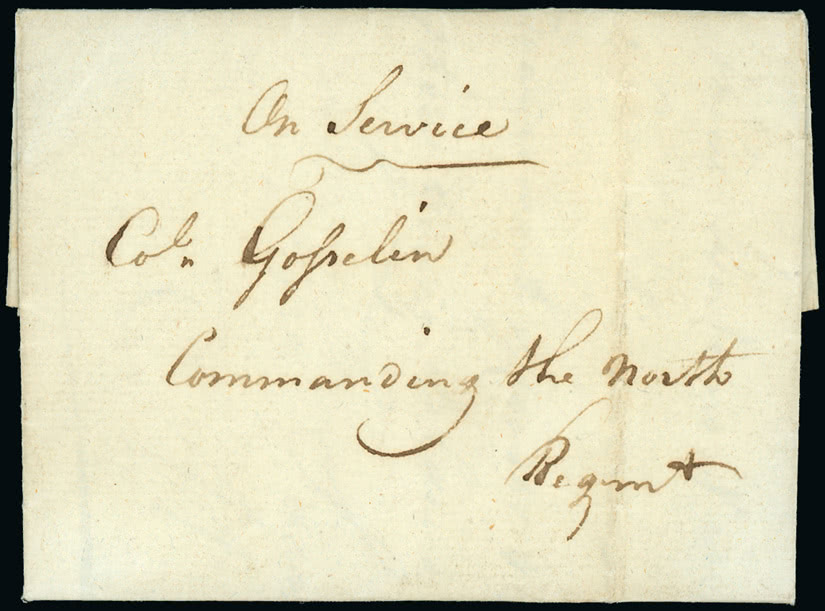 On Service
Coln Gosselin
Commanding the North
Regmt